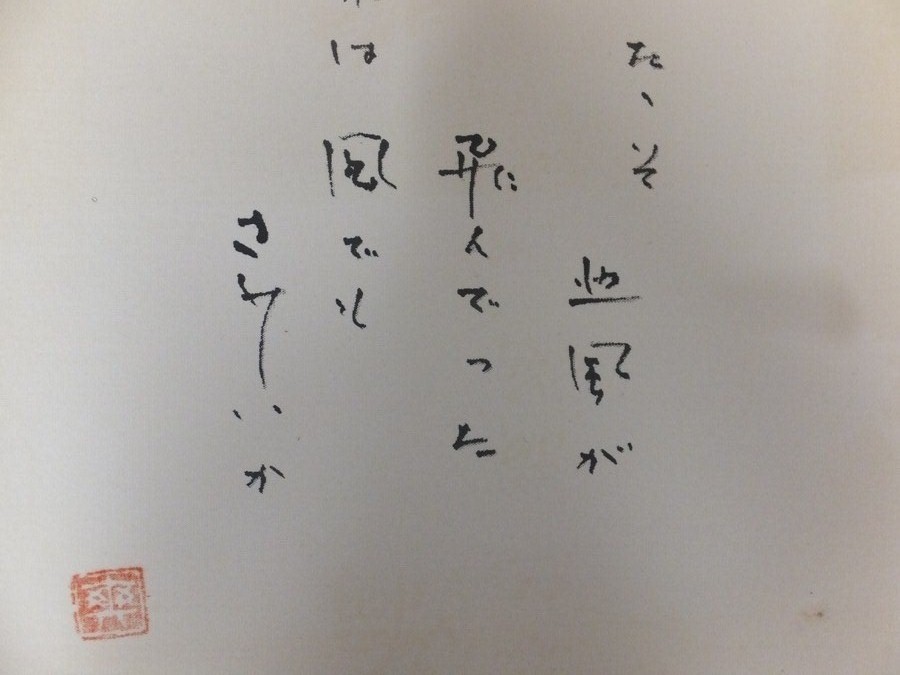 た、そ
風が
飛んでった
は 風でも
さみしいか